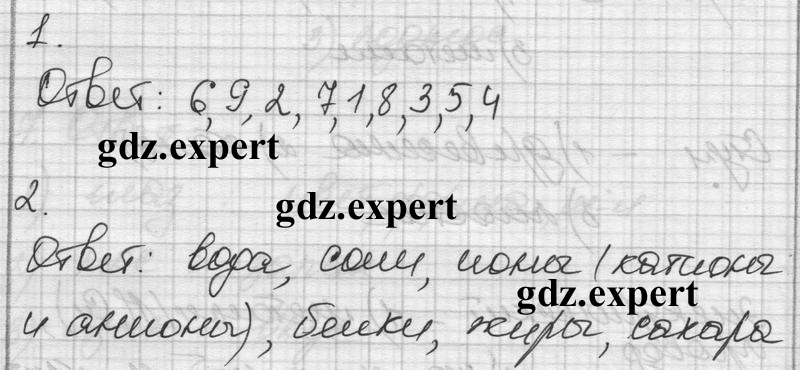 1.
Ответ: 6, 9, 2, 7, 1, 8, 3, 5, 4
gdz.expert
2.
gdz.expert
Ответ: вода, соли, ионы (катионы
gdz.expert
и анионы), белки, жиры, сахара